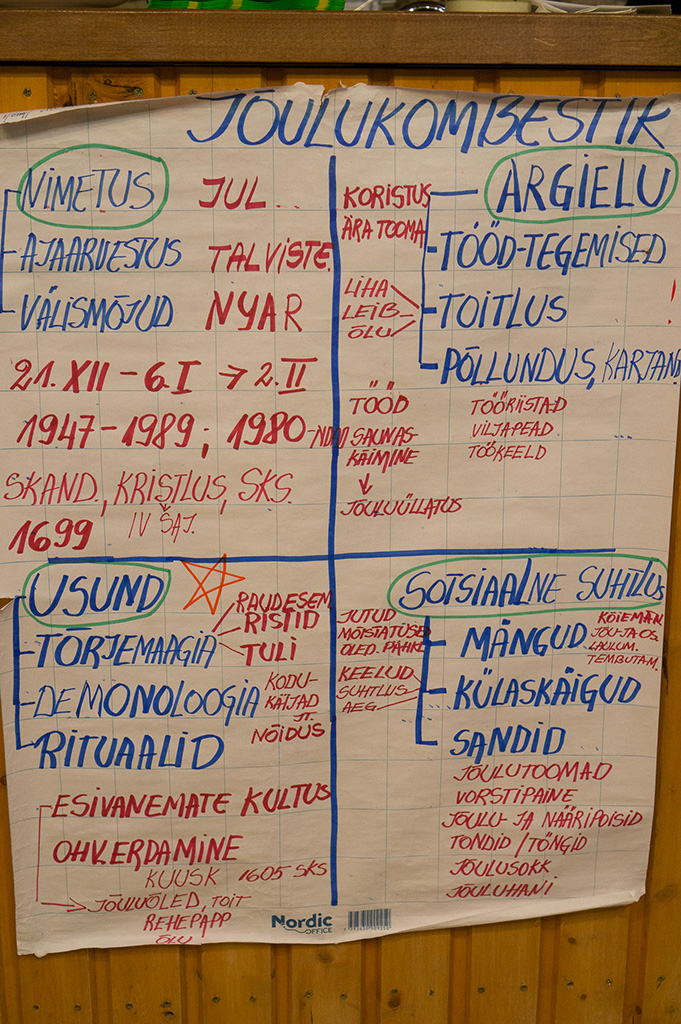 JÕULUKOMBESTIK
NIMETUS JUL
AJAARVESTUS TALVISTE.
VÄLISMÕJUD NYAR
21. XII - 6. I → 2. II
1947 - 1989; 1980-NDNI
SKAND., KRISTLUS, SKS.
IV SAJ.
1699
KORISTUS ARGIELU
ÄRA TOOMA
TÖÖD-TEGEMISED
LIHA
LEIB TOITLUS
ÕLU
PÕLLUNDUS, KARJAND
TÖÖD
SAUNAS-
KÄIMINE
↓
JÕULUÜLLATUS
TÖÖRIISTAD
VILJAPEAD
TÖÖKEELD
!
USUND
RAUDESEM
RISTID
TÕRJEMAAGIA TULI
DEMONOLOOGIA KODU-
KÄIJAD
JT.
NÕIDUS
RITUAALID
ESIVANEMATE KULTUS
OHVERDAMINE
KUUSK 1605 SKS
JÕULUÕLED, TOIT
REHEPAPP
ÕLU
SOTSIAALNE SUHTLUS
JUTUD
MÕISTATUSED
ÕLED. PÄHKL
MÄNGUD
KÕIEMÄN.
JÕU-JA OS.
LAULUM.
TEMBUTAM.
KEELUD
SUHTLUS KÜLASKÄIGUD
AEG
SANDID
JÕULUTOOMAD
VORSTIPAINE
JÕULU- JA NÄÄRIPOISID
TONDID / TÕNGID
JÕULUSOKK
JÕULUHANI
Nordic
OFFICE